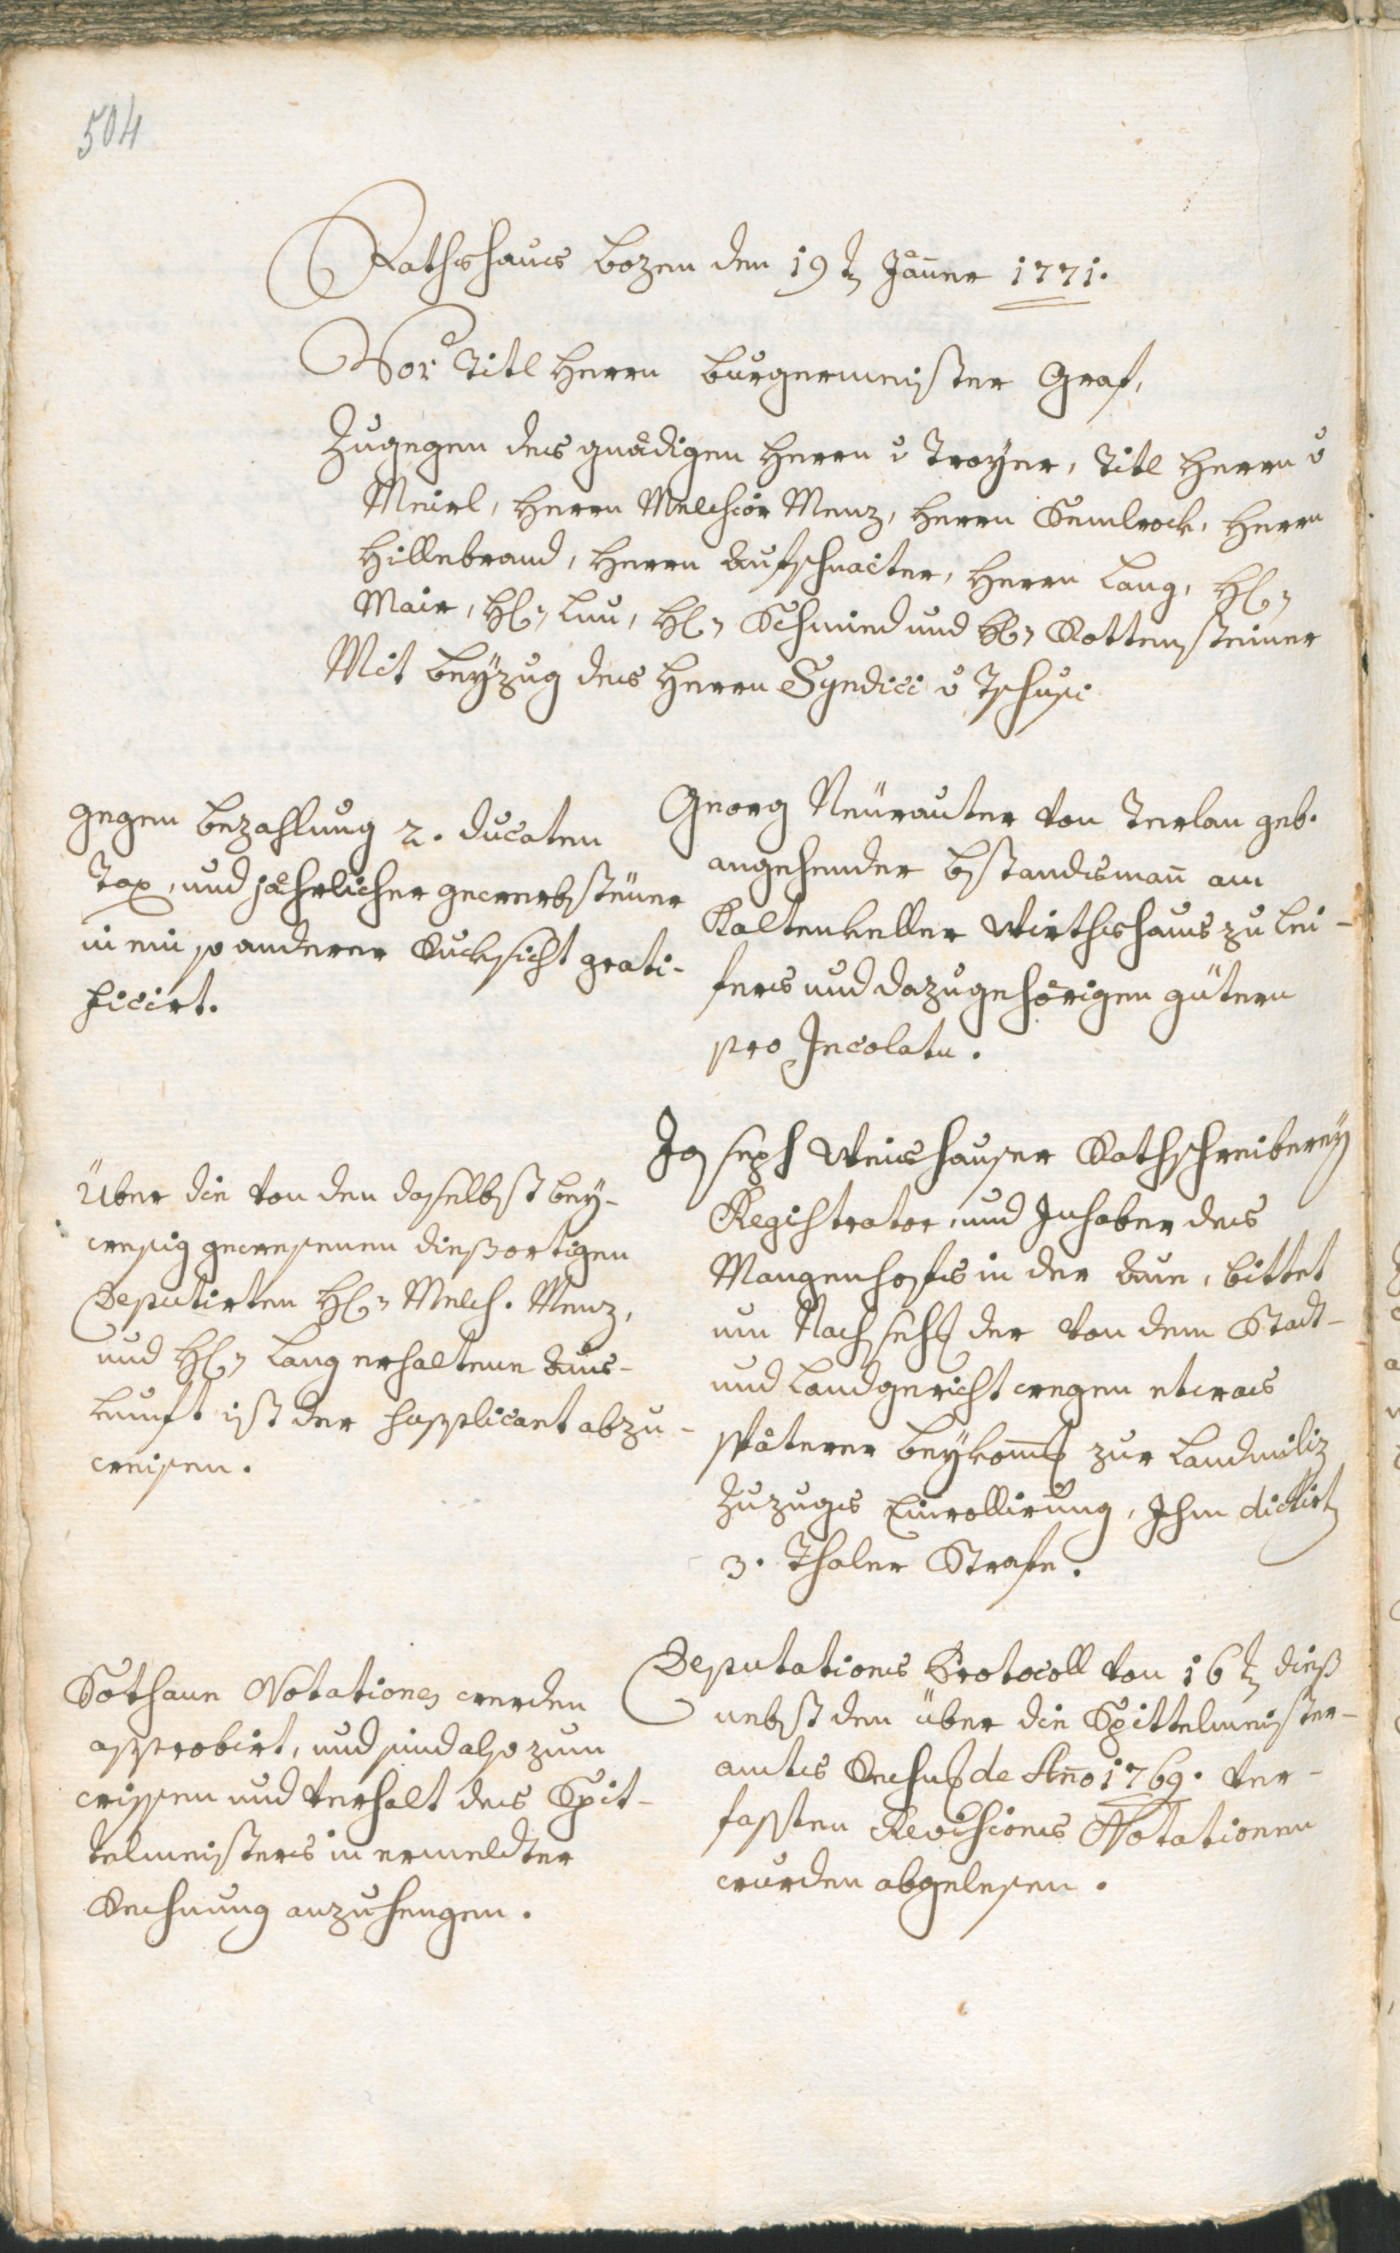 504
Rathshaus Bozen den 19t Jäner 1771.
Vor Titl Herrn Burgermeister Graf,
Zugegen des gnädigen Herrn v Troyer, Titl Herrn v
Meirl, Herrn Melchior Menz, Herrn Kemlrock, Herrn
Hillebrand, Herrn Aufschnaiter, Herrn Lang, H:
Mair, H: Luu, H: Schmied und H: Rottensteiner
Mit beyzug des Herrn Syndici v Tschusi
gegen bezahlung 2. Ducaten
Tax, und jährlicher gewerbsteuer
in ein so anderer Rucksicht grati-
ficirt.
Georg Neürauter von Terlan geb.
angehender bstandsman am
Kaltenkeller Wirthshaus zu Lei-
fers und dazugehörigen gütern
pro Incolatu.
Über die von den daselbst bey-
wesig gewesenen diessortigen
Deputirten H: Melch. Menz,
und H: Lang erhaltene Aus-
kunft ist der supplicant abzu-
weisen.
Joseph Weishauser Rathschreiberey
Registrator, und Inhaber des
Mangenhofs in der Aue, bittet
um Nachsehung der von dem Stadt-
und Landgericht wegen etwas
späterer beykommung zur Landmiliz
Zuzugs Einrollirung, Ihm dictirten
3. Thaler Strafe.
Sothane Notationes werden
approbirt, und sind also zum
wissen und verhalt des Spit-
telmeisters in ermeldter
Rechnung anzuhengen.
Deputations Protocoll von 16t diess
nebst den über die Spittelmeister-
amts Rechnung de Año 1769. ver-
fassten Revisions Notationen
wurden abgelesen.